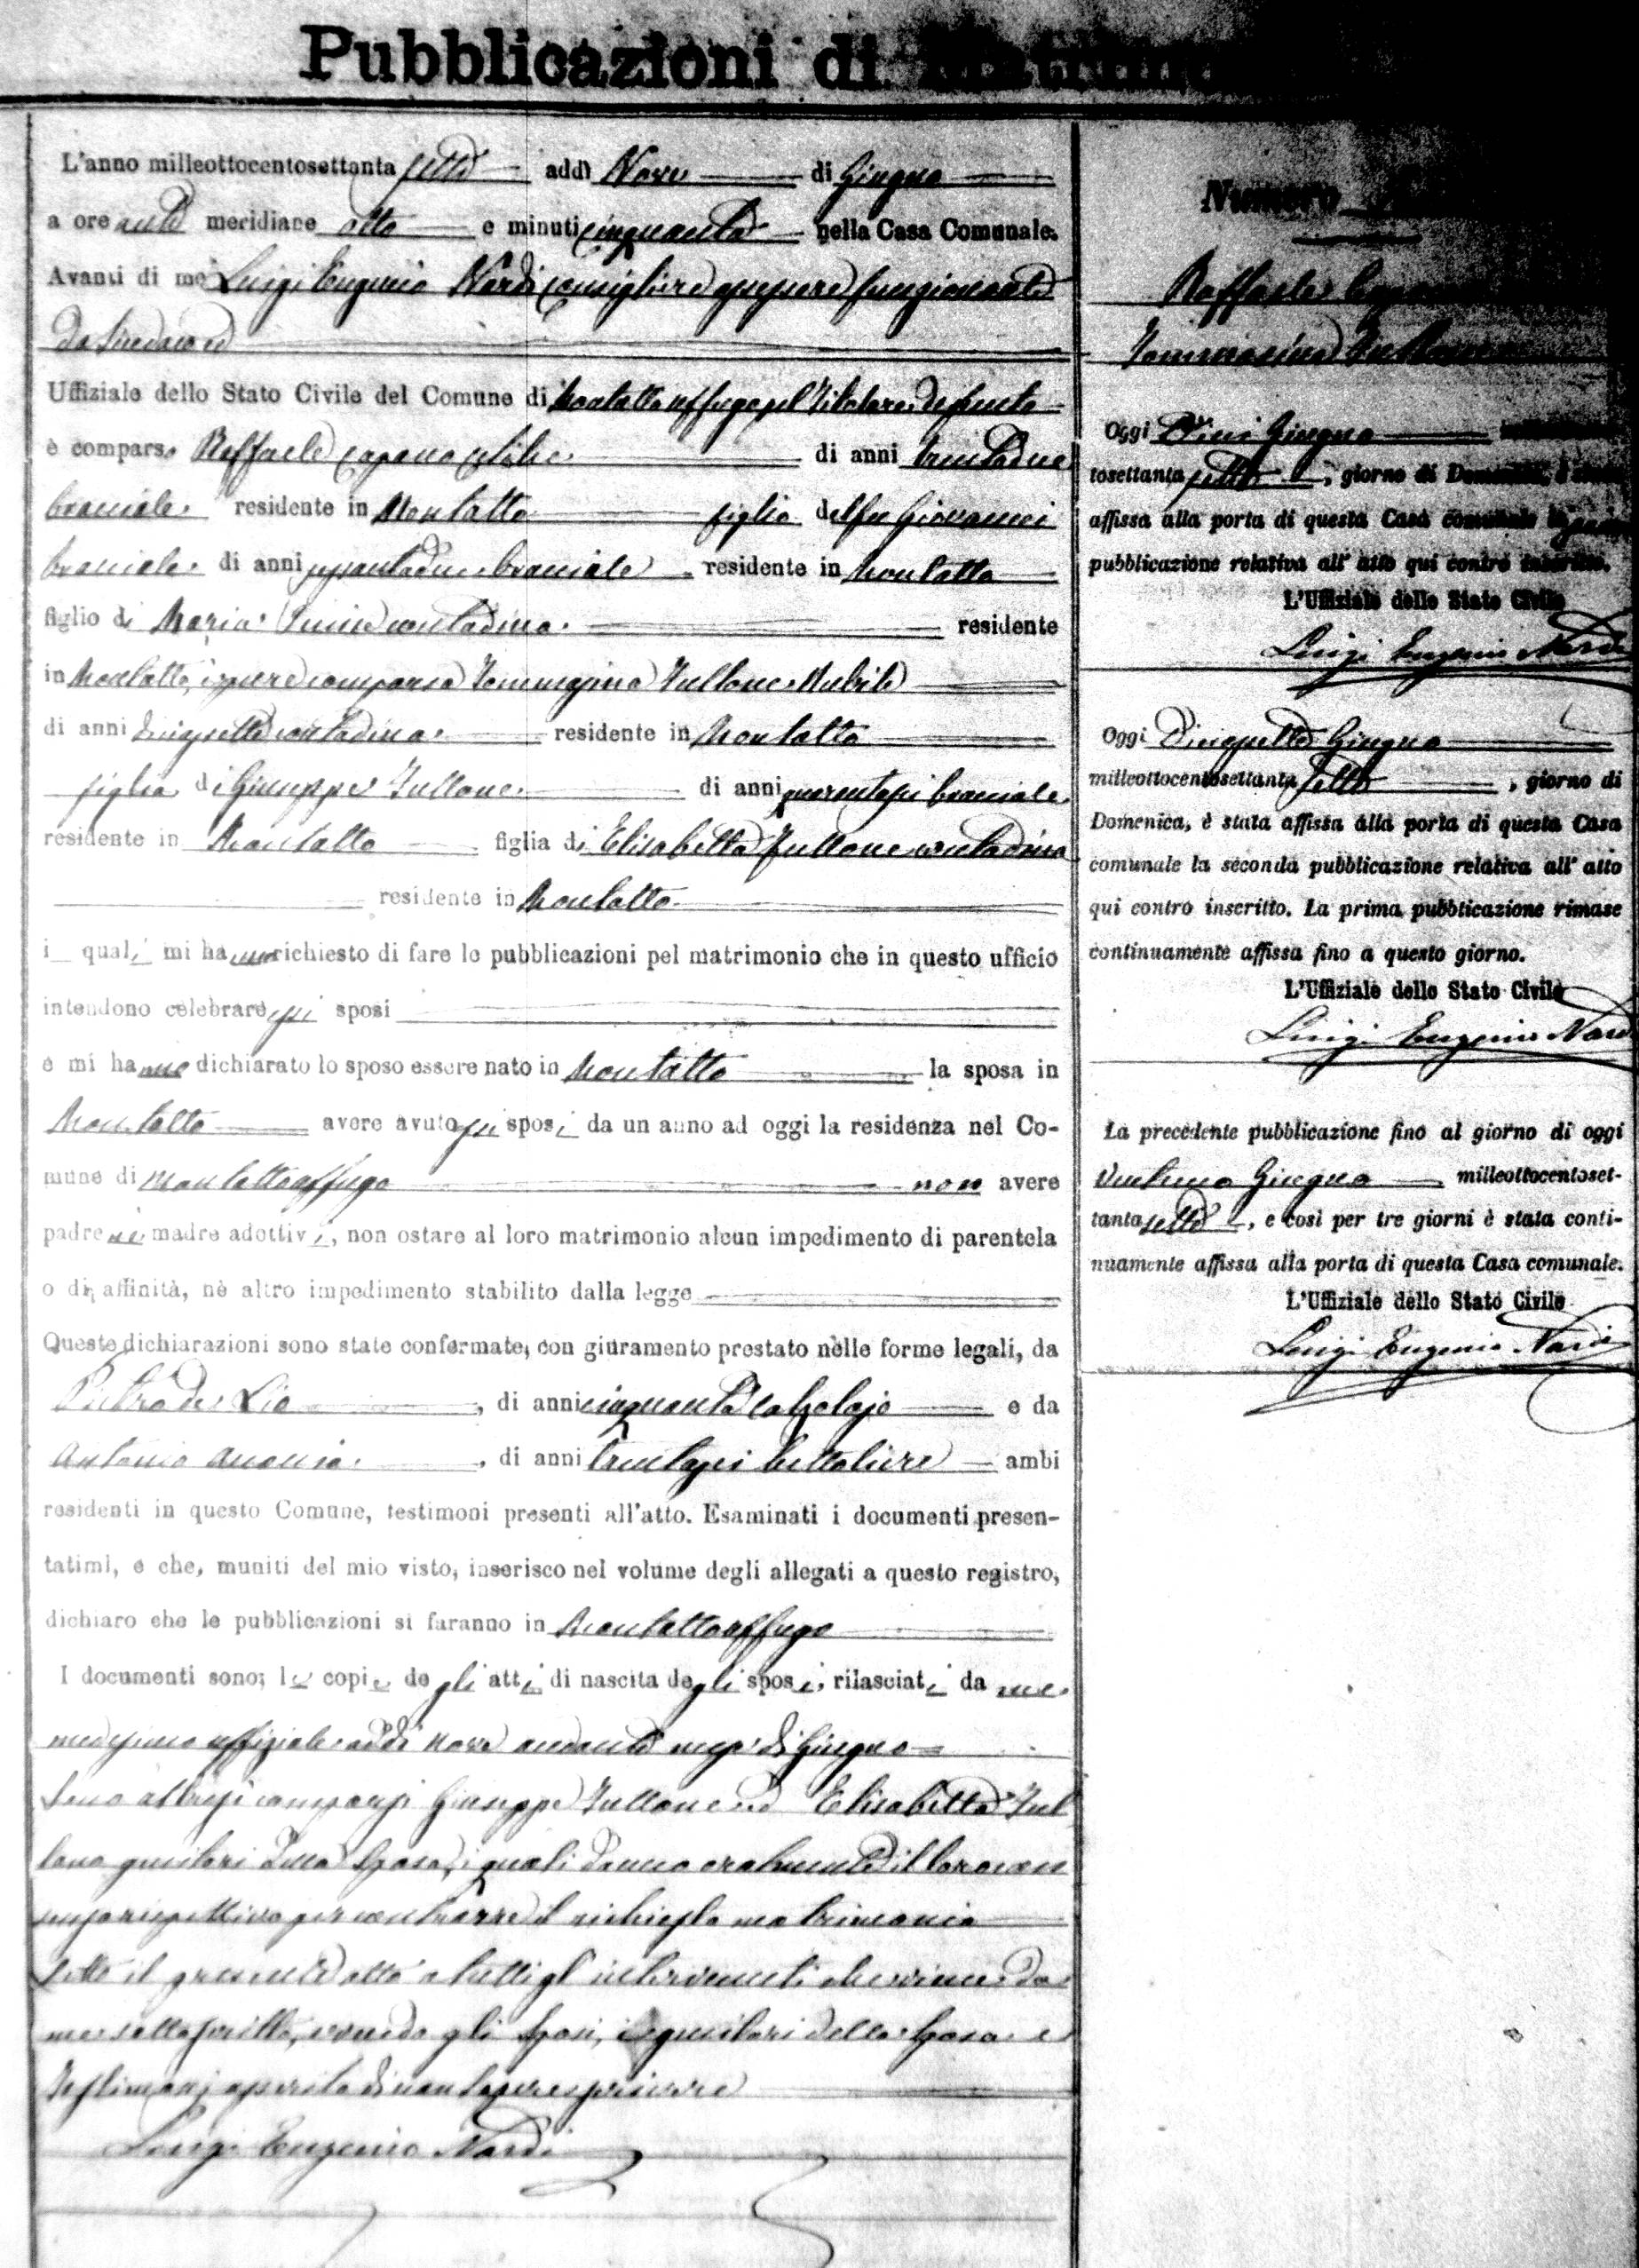 Pubblicazioni di
L'anno milleottocentosettanta sette addì Nove di Giugno
a ore anti meridiane otto e minuti cinquanta nella Casa Comunale.
Avanti di me Luigi Eugenio Nardi Consigliere funzionante
da Sindaco ed
Uffiziale dello Stato Civile del Comune di Montalto uffugo pel Titolare defunto
è comparso Raffaele Capano celibe di anni trentadue
bracciale residente in Montalto figlio del fu Giovanni
bracciale di anni bracciale residente in Montalto
figlio di Maria contadina residente
in Montalto, comparsa Tommasina Fullone Nubile
di anni diciasette contadina residente in Montalto
figlia di Giuseppe Fullone di anni quarantasei bracciale
residente in Montalto figlia di Elisabetta Fullone contadina
residente in Montalto
i quali mi hanno richiesto di fare le pubblicazioni pel matrimonio che in questo ufficio
intendono celebrare essi sposi
e mi hanno dichiarato lo sposo essere nato in Montalto la sposa in
Montalto avere avuto essi sposi da un anno ad oggi la residenza nel Co-
mune di Montalto uffugo non avere
padre nè madre adottivi, non ostare al loro matrimonio alcun impedimento di parentela
o di affinità, nè altro impedimento stabilito dalla legge
Queste dichiarazioni sono state confermate, con giuramento prestato nelle forme legali, da
Pietro de Lio, di anni cinquanta calzolajo e da
Antonio Anania, di anni trentasei bettoliere ambi
residenti in questo Comune, testimoni presenti all'atto. Esaminati i documenti presen-
tatimi, e che, muniti del mio visto, inserisco nel volume degli allegati a questo registro,
dichiaro che le pubblicazioni si faranno in Montalto uffugo
I documenti sono; le copie degli atti di nascita degli sposi, rilasciati da me
medesimo uffiziale addì nove andante mese di Giugno
Sono altresì comparsi Giuseppe Fullone ed Elisabetta Ful
lone genitori della Sposa, i quali danno oralmente il loro con
senso rispettivo per contrarre il richiesto matrimonio
Letto il presente atto a tutti gl'intervenuti che viene da
me sottoscritto, avendo gli Sposi, i genitori della Sposa e
Testimonj asserito di non sapere scrivere
Luigi Eugenio Nardi
Numero
Raffaele
Tommasina
Oggi Dieci Giugno
tosettanta sette, giorno di
affissa alla porta di questa Casa comunale la
pubblicazione relativa all'atto qui contro inscritto.
L'Uffiziale dello Stato Civile
Luigi Eugenio Nardi
Oggi Diciasette Giugno
milleottocentosettanta sette, giorno di
Domenica, è stata affissa alla porta di questa Casa
comunale la seconda pubblicazione relativa all'atto
qui contro inscritto. La prima pubblicazione rimase
continuamente affissa fino a questo giorno.
L'Uffiziale dello Stato Civile
Luigi Eugenio Nardi
La precedente pubblicazione fino al giorno di oggi
Ventuno Giugno milleottocentoset-
tanta sette, e così per tre giorni è stata conti-
nuamente affissa alla porta di questa Casa comunale.
L'Uffiziale dello Stato Civile
Luigi Eugenio Nardi